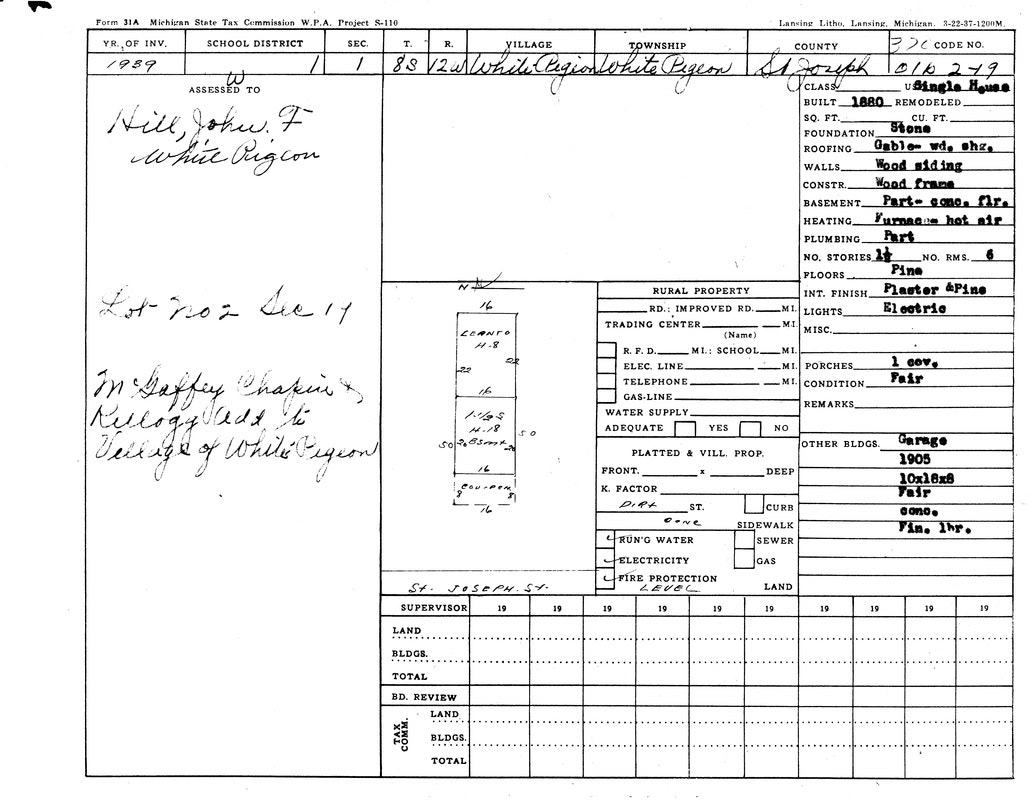 Form 31A Michigan State Tax Commission W.P.A. Project S-110
Lansing Litho, Lansing, Michigan. 3-22-37-1200M.
YR. OF INV. SCHOOL DISTRICT SEC. T. R. VILLAGE TOWNSHIP COUNTY CODE NO.
1939 W 1 1 8S 12W White Pigeon White Pigeon St Joseph 01b 2-19
ASSESSED TO
Hill, John. F
White Pigeon
Lot No 2 Sec 19
McGaffey Chapin &
Kellogg Add to
Village of White Pigeon
CLASS
Single House
BUILT 1880 REMODELED
SQ. FT. CU. FT.
FOUNDATION Stone
ROOFING Gable- wd. shg.
WALLS Wood siding
CONSTR. Wood frame
BASEMENT Part- conc. flr.
HEATING Furnace- hot air
PLUMBING Part
NO. STORIES 1½ NO. RMS. 6
FLOORS Pine
INT. FINISH Plaster &Pine
LIGHTS Electric
MISC.
PORCHES 1 cov.
CONDITION Fair
REMARKS
OTHER BLDGS. Garage
1905
10x18x8
Fair
conc.
Fin. lbr.
N
16
LEANTO
H-8
22
22
16
H-18
50
50
26 BSmt 26
16
8 8
16
St. JOSEPH. St-
RURAL PROPERTY
RD.; IMPROVED RD. MI.
TRADING CENTER MI.
(Name)
R. F. D. MI.: SCHOOL MI.
ELEC. LINE MI.
TELEPHONE MI.
GAS-LINE
WATER SUPPLY
ADEQUATE YES NO
PLATTED & VILL. PROP.
FRONT. x DEEP
K. FACTOR
DIRT ST. CURB
CONC SIDEWALK
RUN'G WATER SEWER
ELECTRICITY GAS
FIRE PROTECTION
LEVEL LAND
SUPERVISOR 19 19 19 19 19 19 19 19 19 19
LAND
BLDGS.
TOTAL
BD. REVIEW
TAX COMM.
LAND
BLDGS.
TOTAL